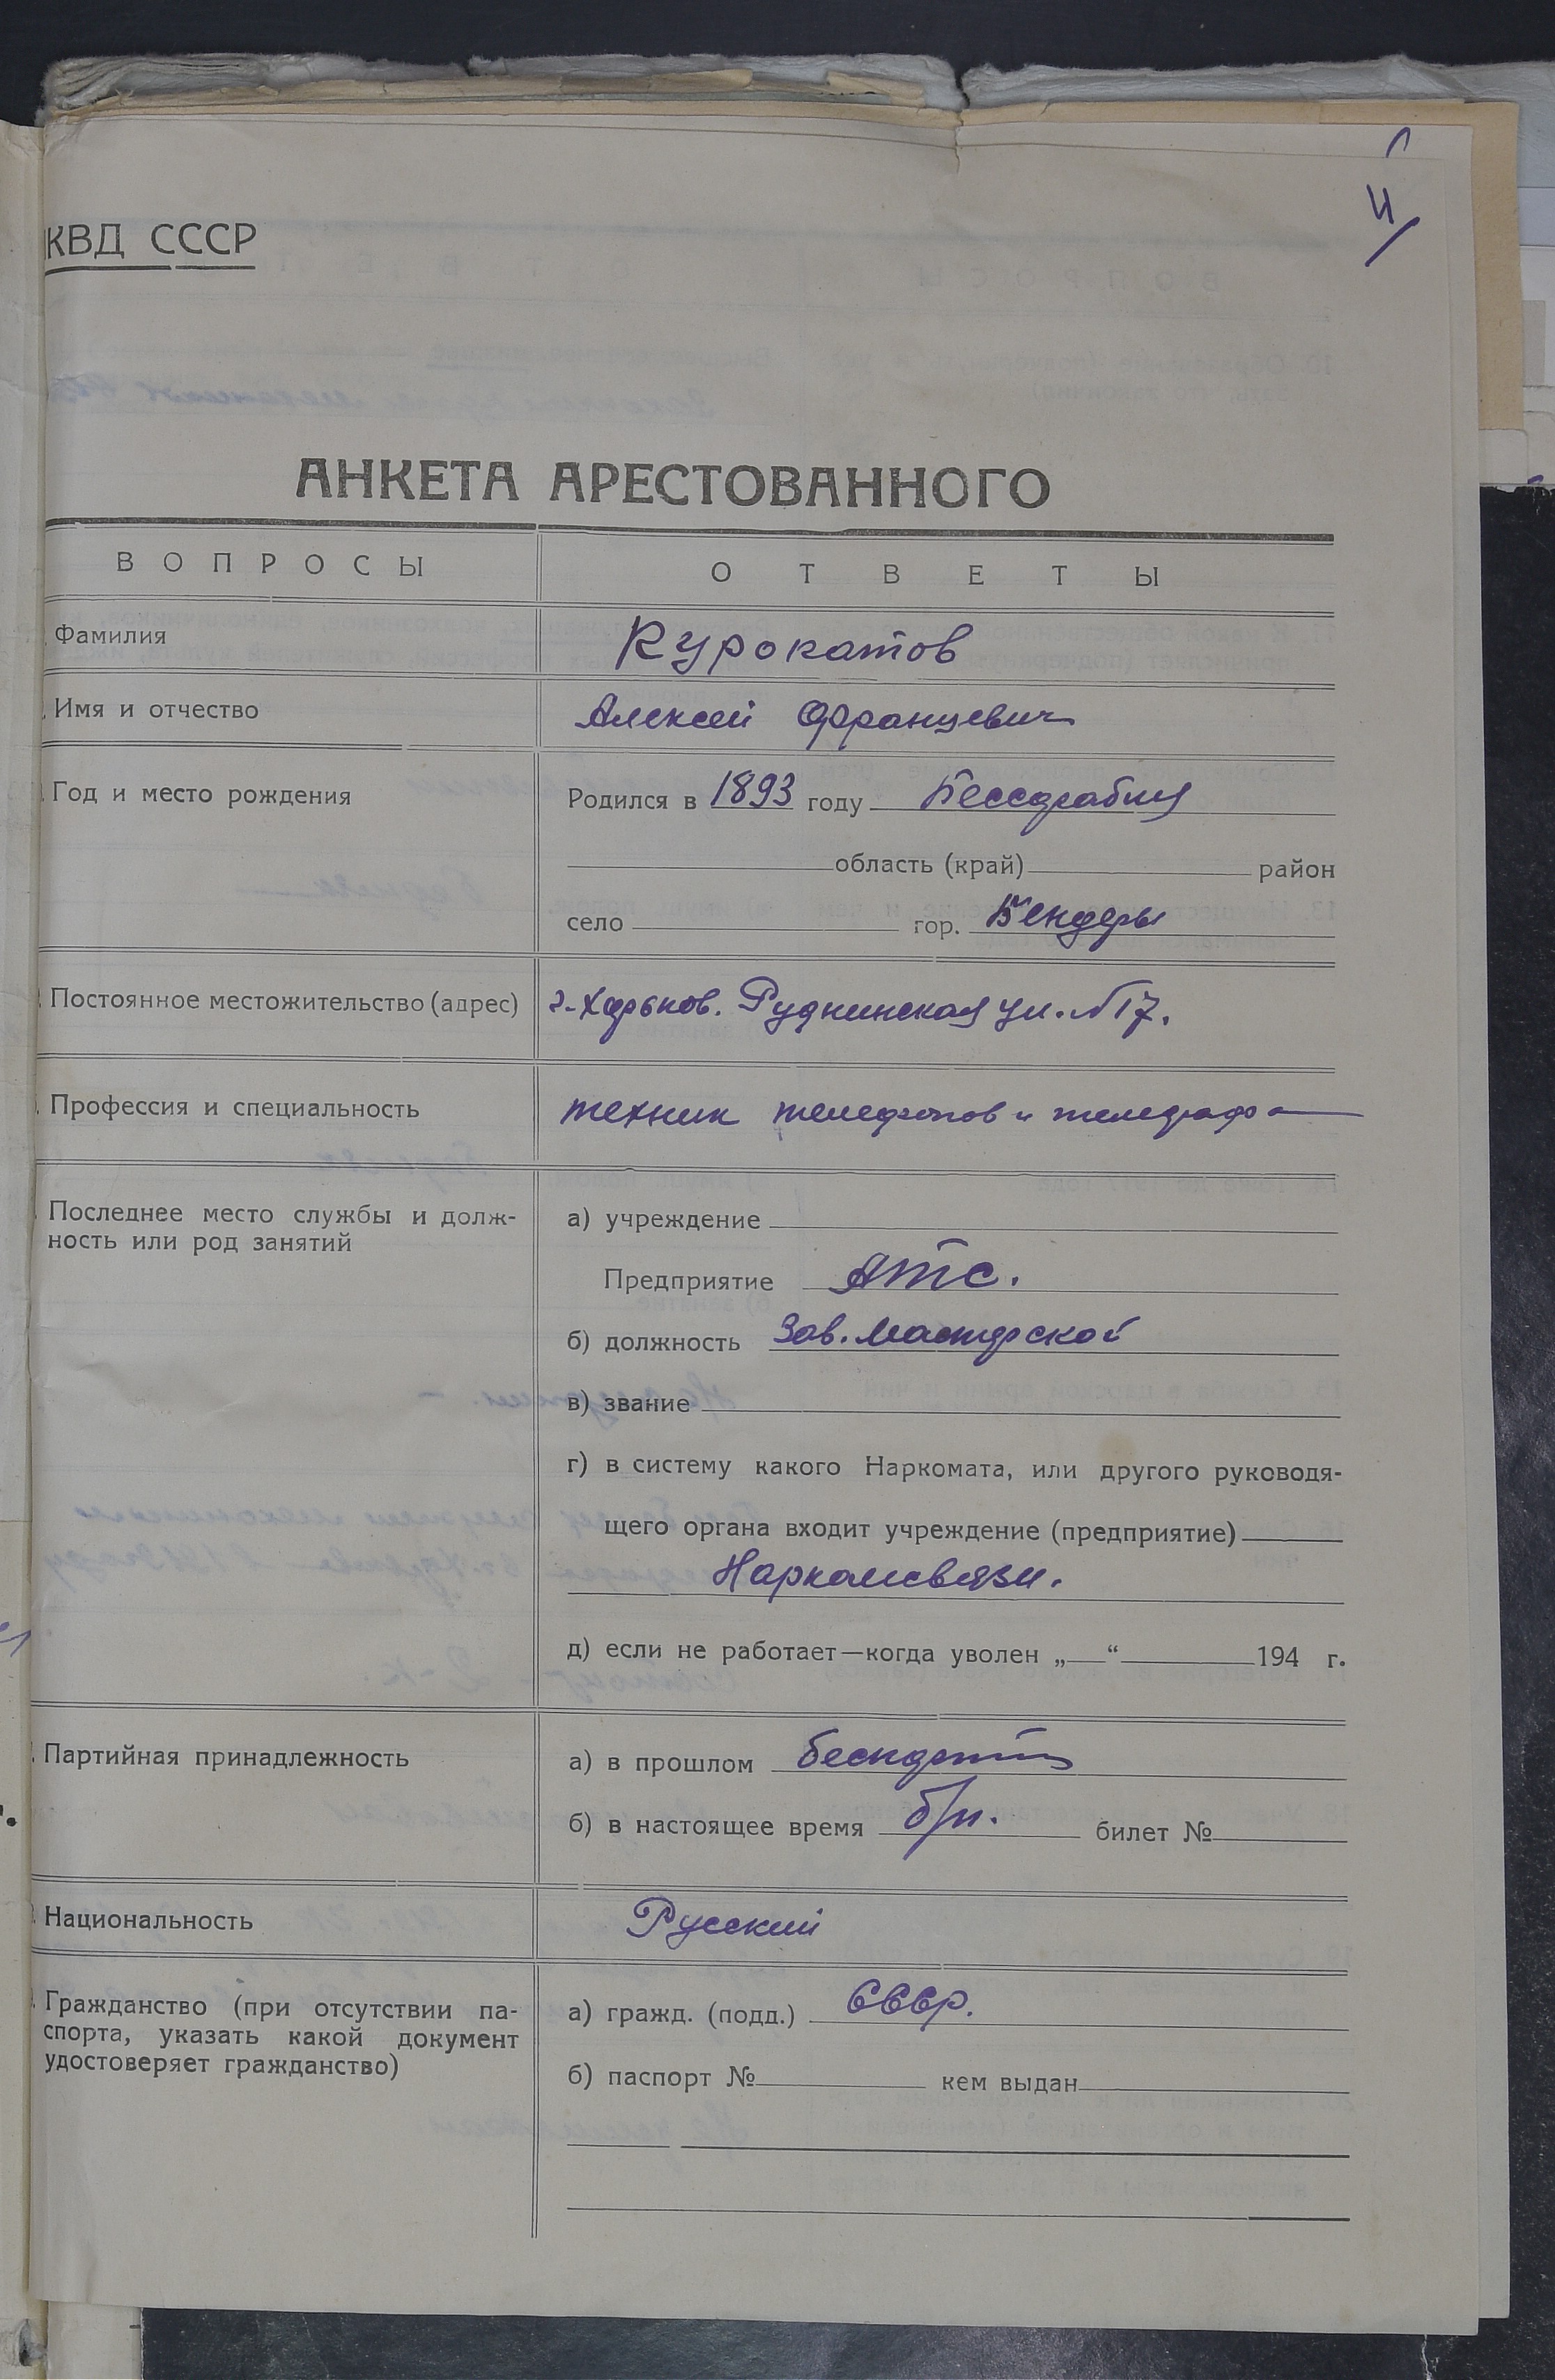 И
КВД СССР
АНКЕТА АРЕСТОВАННОГО
ВОПРОСЫ ОТВЕТЫ
Фамилия Курокатов
Имя и отчество Алексей Францевич
Год и место рождения Родился в 1893 году Бессарабия
область (край) район
село гор. Бендеры
Постоянное местожительство (адрес) г. Харьков. Руднинская ул. №17.
Профессия и специальность техник телефонов и телеграфа
Последнее место службы и долж- а) учреждение
ность или род занятий
Предприятие АТС.
б) должность Зав. Мастерской
в) звание
г) в систему какого Наркомата, или другого руководя-
щего органа входит учреждение (предприятие)
Наркомсвязи.
д) если не работает—когда уволен „ “ 194 г.
Партийная принадлежность а) в прошлом
б) в настоящее время б/п. билет №
Национальность Русский
Гражданство (при отсутствии па- а) гражд. (подд.) СССР.
спорта, указать какой документ
удостоверяет гражданство) б) паспорт № кем выдан